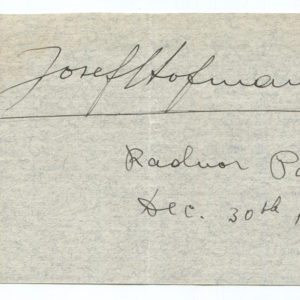 Josef Hofman
Radnor Pa
Dec. 30th